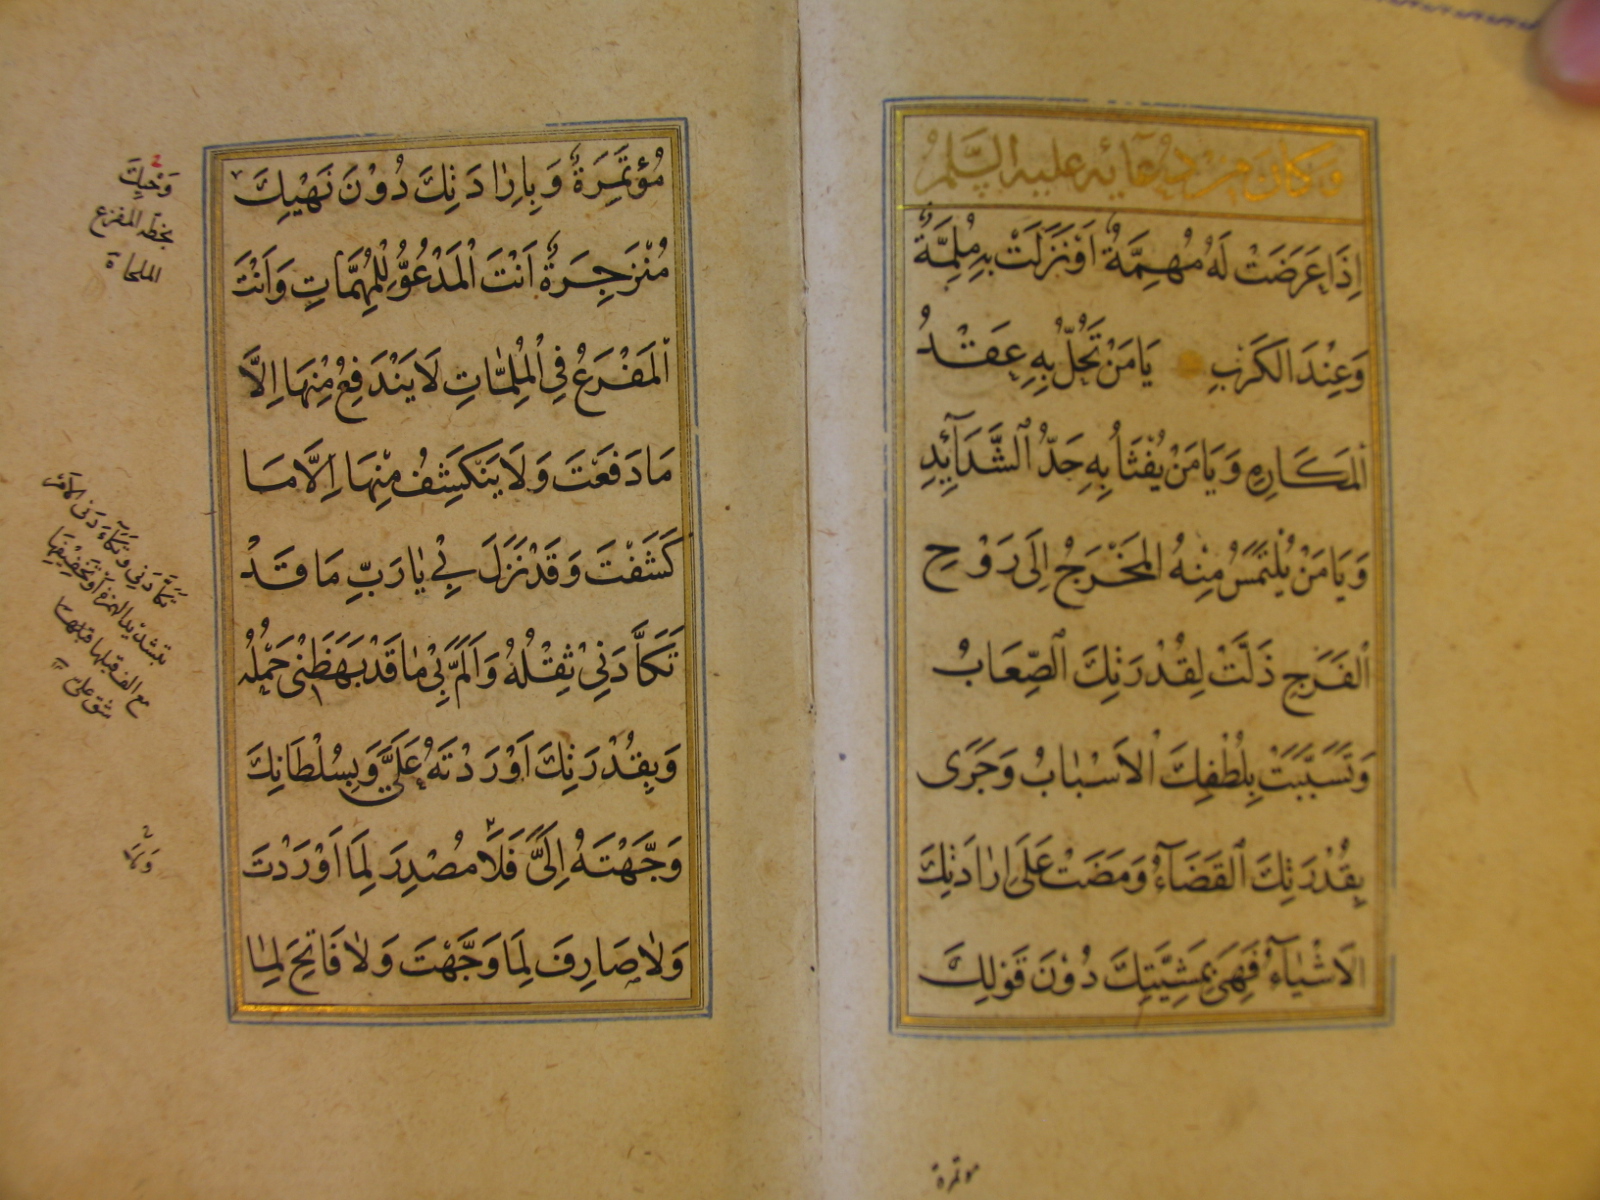 وَكَانَ مِنْ دُعَائِهِ عَلَيْهِ السَّلَمُ
اِذَا عَرَضَتْ لَهُ مُهِمَّةٌ اَوْ نَزَلَتْ بِهِ مُلِمَّةٌ
وَعِنْدَ الْكَرْبِ يَا مَنْ تُحَلُّ بِهِ عِقَدُ
الْمَكَارِهِ وَيَا مَنْ يُفْثَأُ بِهِ حَدُّ الشَّدَآئِدِ
وَيَا مَنْ يُلْتَمَسُ مِنْهُ الْمَخْرَجُ اِلَى رَوْحِ
الْفَرَجِ ذَلَّتْ لِقُدْرَتِكَ الصِّعَابُ
وَتَسَبَّبَتْ بِلُطْفِكَ الْاَسْبَابُ وَجَرَى
بِقُدْرَتِكَ الْقَضَآءُ وَمَضَتْ عَلَى اِرَادَتِكَ
الْاَشْيَآءُ فَهِىَ بِمَشِيَّتِكَ دُوْنَ قَوْلِكَ
موتمرة
مُؤْتَمِرَةٌ وَبِاِرَادَتِكَ دُوْنَ نَهْيِكَ
مُنْزَجِرَةٌ اَنْتَ الْمَدْعُوُّ لِلْمُهِمَّاتِ وَاَنْتَ
الْمَفْزَعُ فِي الْمُلِمَّاتِ لَا يَنْدَفِعُ مِنْهَا اِلَّا
مَا دَفَعْتَ وَلَا يَنْكَشِفُ مِنْهَا اِلَّا مَا
كَشَفْتَ وَقَدْ نَزَلَ بِيْ يَا رَبِّ مَا قَدْ
تَكَأَّدَنِيْ ثِقْلُهُ وَاَلَمَّ بِيْ مَا قَدْ بَهَظَنِيْ حَمْلُهُ
وَبِقُدْرَتِكَ اَوْرَدْتَهُ عَلَيَّ وَبِسُلْطَانِكَ
وَجَّهْتَهُ اِلَيَّ فَلَا مُصْدِرَ لِمَا اَوْرَدْتَ
وَلَا صَارِفَ لِمَا وَجَّهْتَ وَلَا فَاتِحَ لِمَا
بخطه المفزع
تكَأَّدَنِي وَتَكَآءَدَنى الامر
بتشديد الهمزة او تخفيفها
مع الف قبلها
شق على